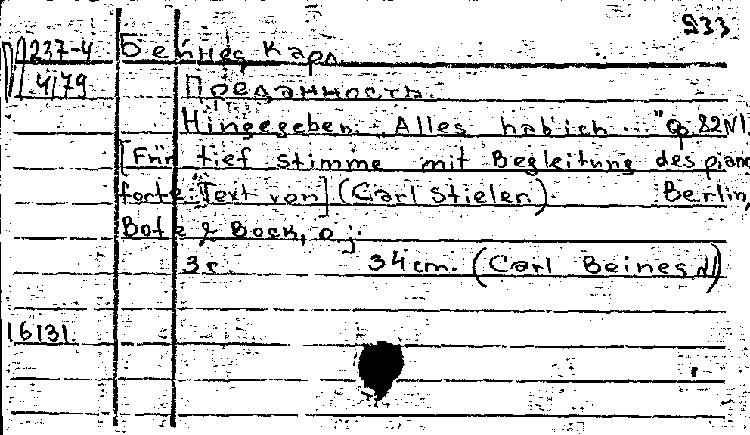 933
V 1237-4 Бейнес Карл
4179 Преданность.
Hingegeben: "Alles hab ich ..." Op 82 N1
[Für tief stimme mit Begleitung des piano
forte. Text von] (Carl Stieler). Berlin,
Bote & Bock, o. j.
3 с. 34 cm. (Carl Beines
16131.